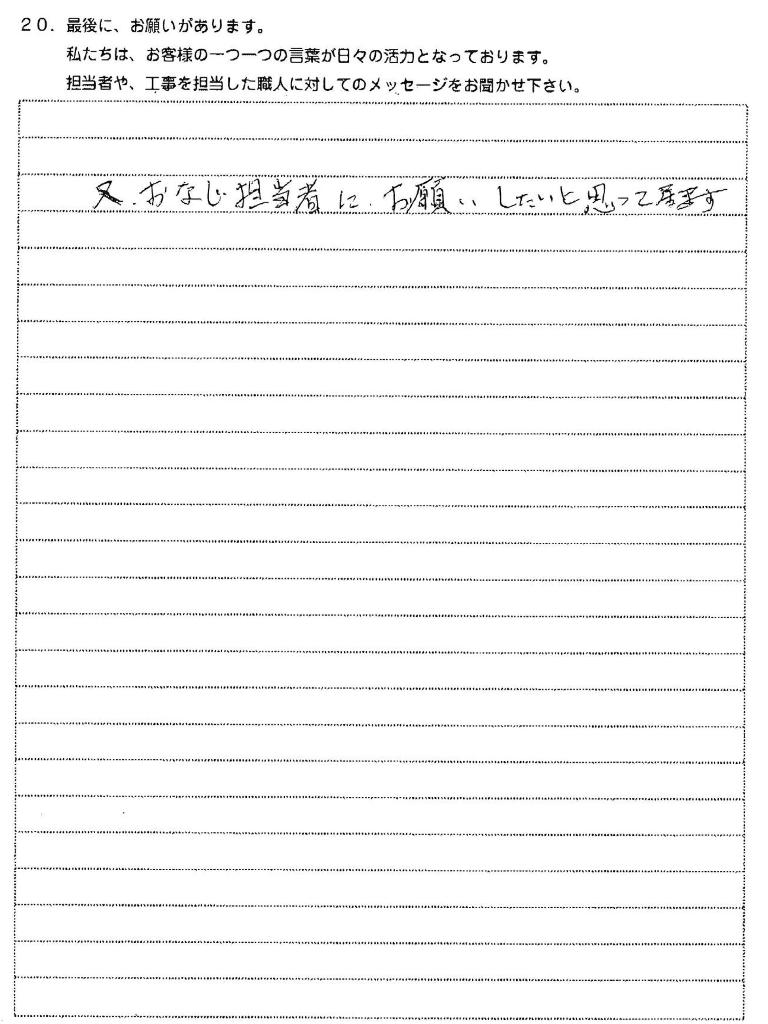 20. 最後に、お願いがあります。
私たちは、お客様の一つ一つの言葉が日々の活力となっております。
担当者や、工事を担当した職人に対してのメッセージをお聞かせ下さい。
又、おなじ担当者に、お願いしたいと思って居ます